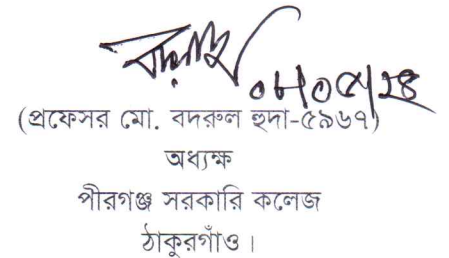 ০৮/০৫/২৪
(প্রফেসর মো. বদরুল হুদা-৫৯৬৭)
অধ্যক্ষ
পীরগঞ্জ সরকারি কলেজ
ঠাকুরগাঁও।